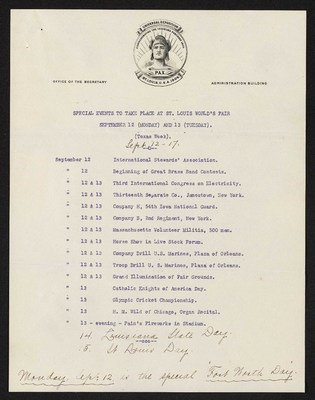 UNIVERSAL EXPOSITION
PAX
ST. LOUIS, U.S.A. 1904
OFFICE OF THE SECRETARY
ADMINISTRATION BUILDING
SPECIAL EVENTS TO TAKE PLACE AT ST. LOUIS WORLD'S FAIR
SEPTEMBER 12 (MONDAY) AND 13 (TUESDAY).
(Texas Week).
Sept. 12-17.
September 12 International Stewards' Association.
" 12 Beginning of Great Brass Band Contests.
" 12 & 13 Third International Congress on Electricity.
" 12 & 13 Thirteenth Separate Co., Jamestown, New York.
" 12 & 13 Company H, 54th Iowa National Guard.
" 12 & 13 Company B, 2nd Regiment, New York.
" 12 & 13 Massachusetts Volunteer Militia, 500 men.
" 12 & 13 Horse Show in Live Stock Forum.
" 12 & 13 Company Drill U.S. Marines, Plaza of Orleans.
" 12 & 13 Troop Drill U. S. Marines, Plaza of Orleans.
" 12 & 13 Grand Illumination of Fair Grounds.
" 13 Catholic Knights of America Day.
" 13 Olympic Cricket Championship.
" 13 H. M. Wild of Chicago, Organ Recital.
" 13 - evening - Pain's Fireworks in Stadium.
14 Louisiana State Day
15 St Louis Day
Monday Sept 12 is the special "Fort Worth Day."